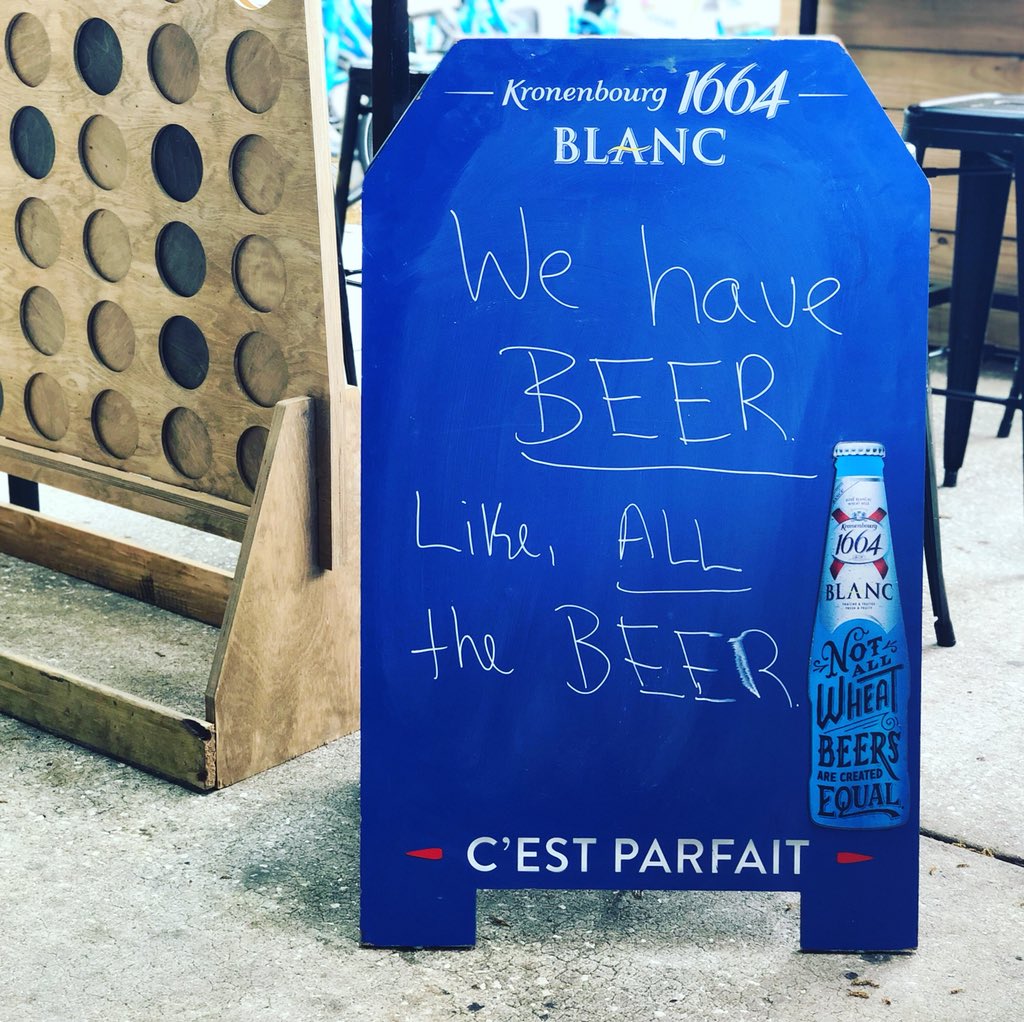 Kronenbourg 1664
BLANC
We have
BEER.
Like, ALL
the BEER.
Kronenbourg
1664
BLANC
NOT
ALL
WHEAT
BEERS
ARE CREATED
EQUAL
C'EST PARFAIT